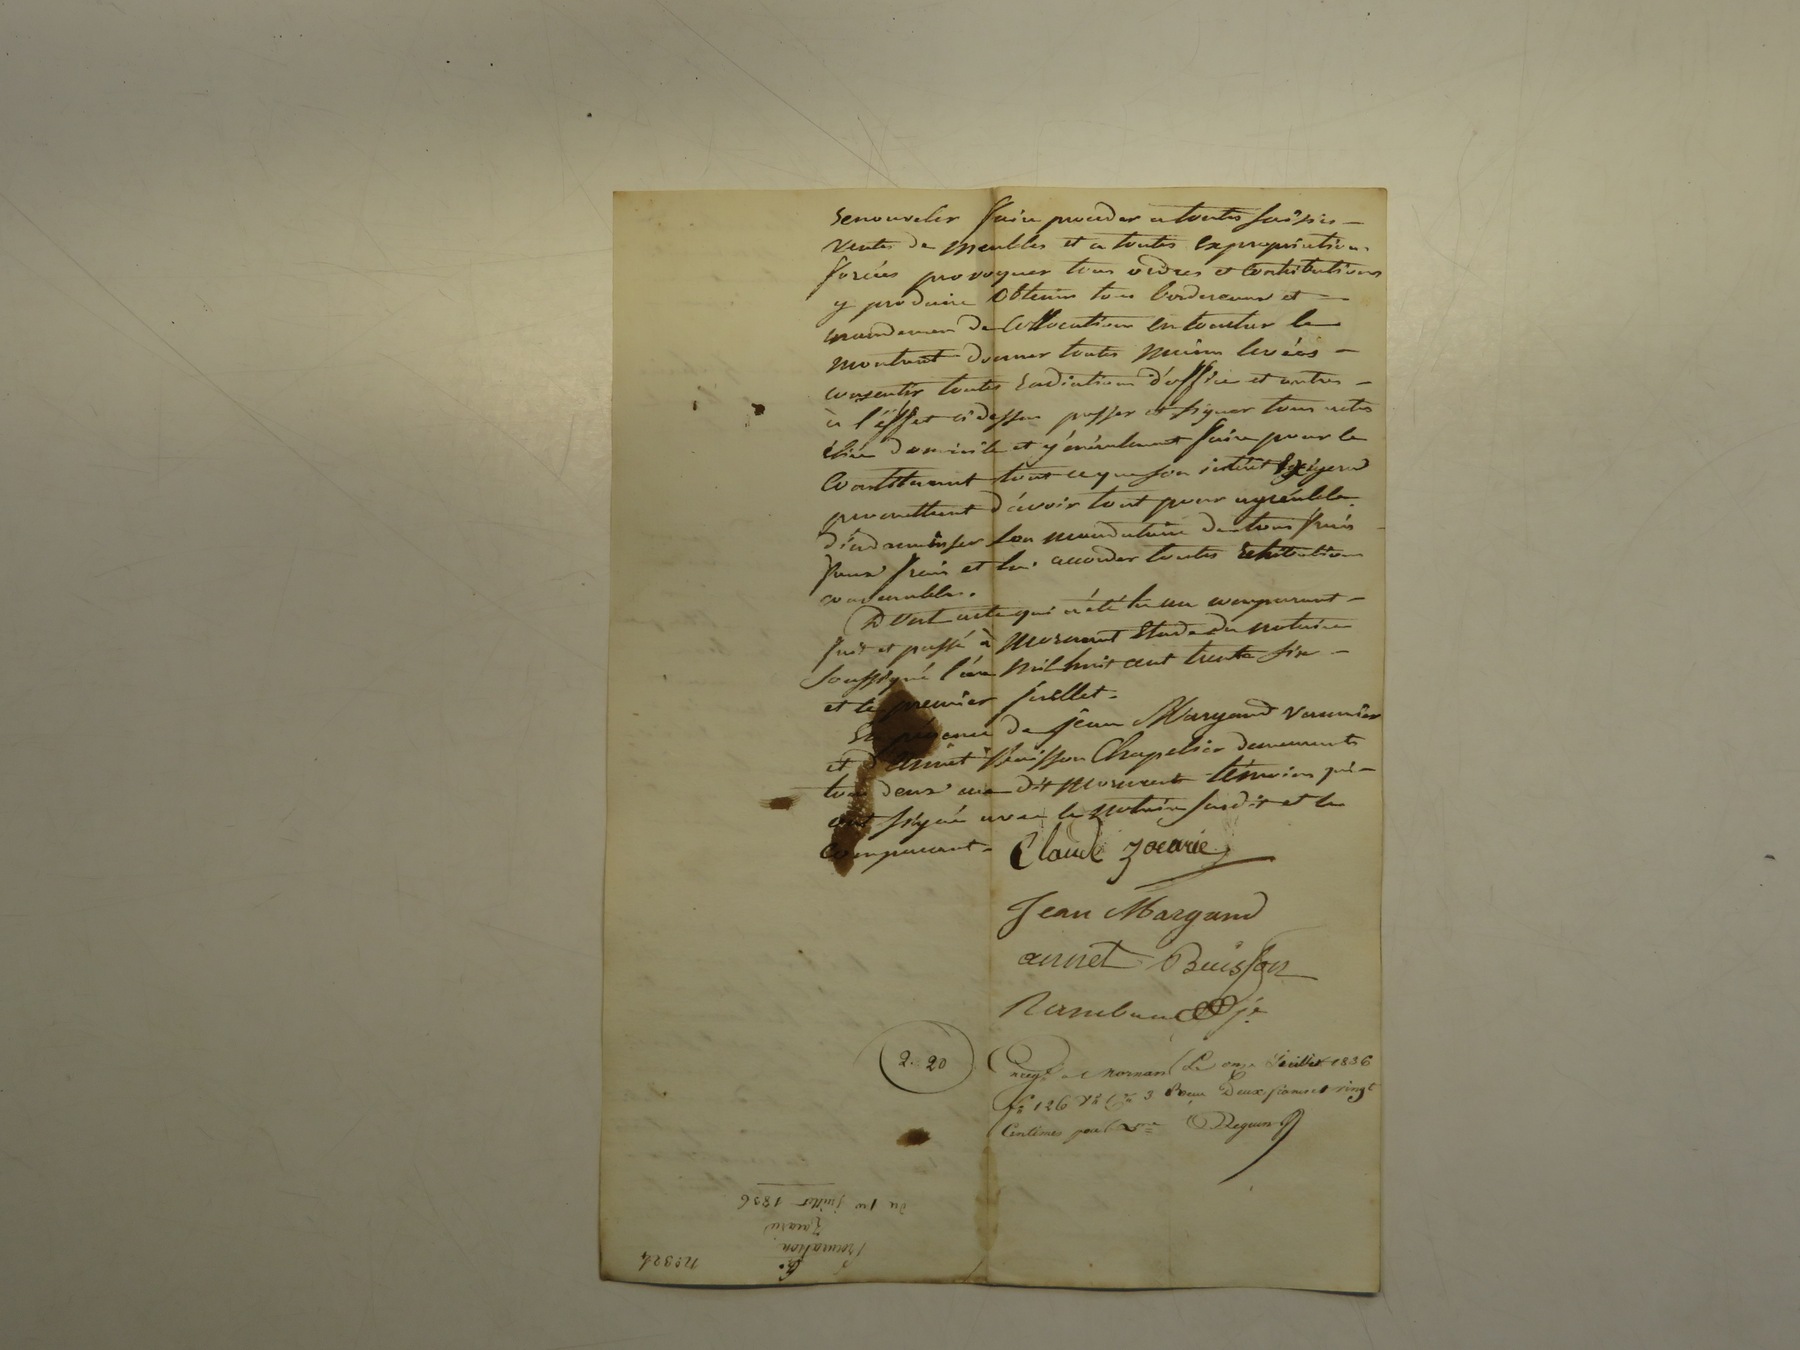 renouveler faire proceder a toutes saisies —
ventes de meubles et a toutes expropriations
forcées provoquer tous ordres et contributions
y produire obtenir tous bordereaux et —
mandemens de collocation en toucher le
montant donner toutes mains levées —
consentir toutes radiations d'office et autres —
à l'effet ci dessus passer et signer tous actes
élire domicile et généralement faire pour le
constituant tout ce que son intérêt exigera
promettant d'avoir tout pour agréable
d'indemniser son mandataire de tous
faux frais et lui accorder toutes
convenables.
Dont acte qui a été lu au comparant —
fait et passé à Mornant étude du notaire
soussigné l'an mil huit cent trente six —
et le premier juillet.
En présence de jean Margand
et d'Annet Buisson Chapelier demeurants
tous deux au dit Mornant témoins qui —
ont signé avec le notaire susdit et le
comparant —
Claude zacarie
Jean Margand
annet Buisson
2. 20
à Mornant Le onze Juillet 1836
f° 126 3 Deux francs vingt
Centimes pour
du 1er juillet 1836
Zacarie
Procuration
N° 324